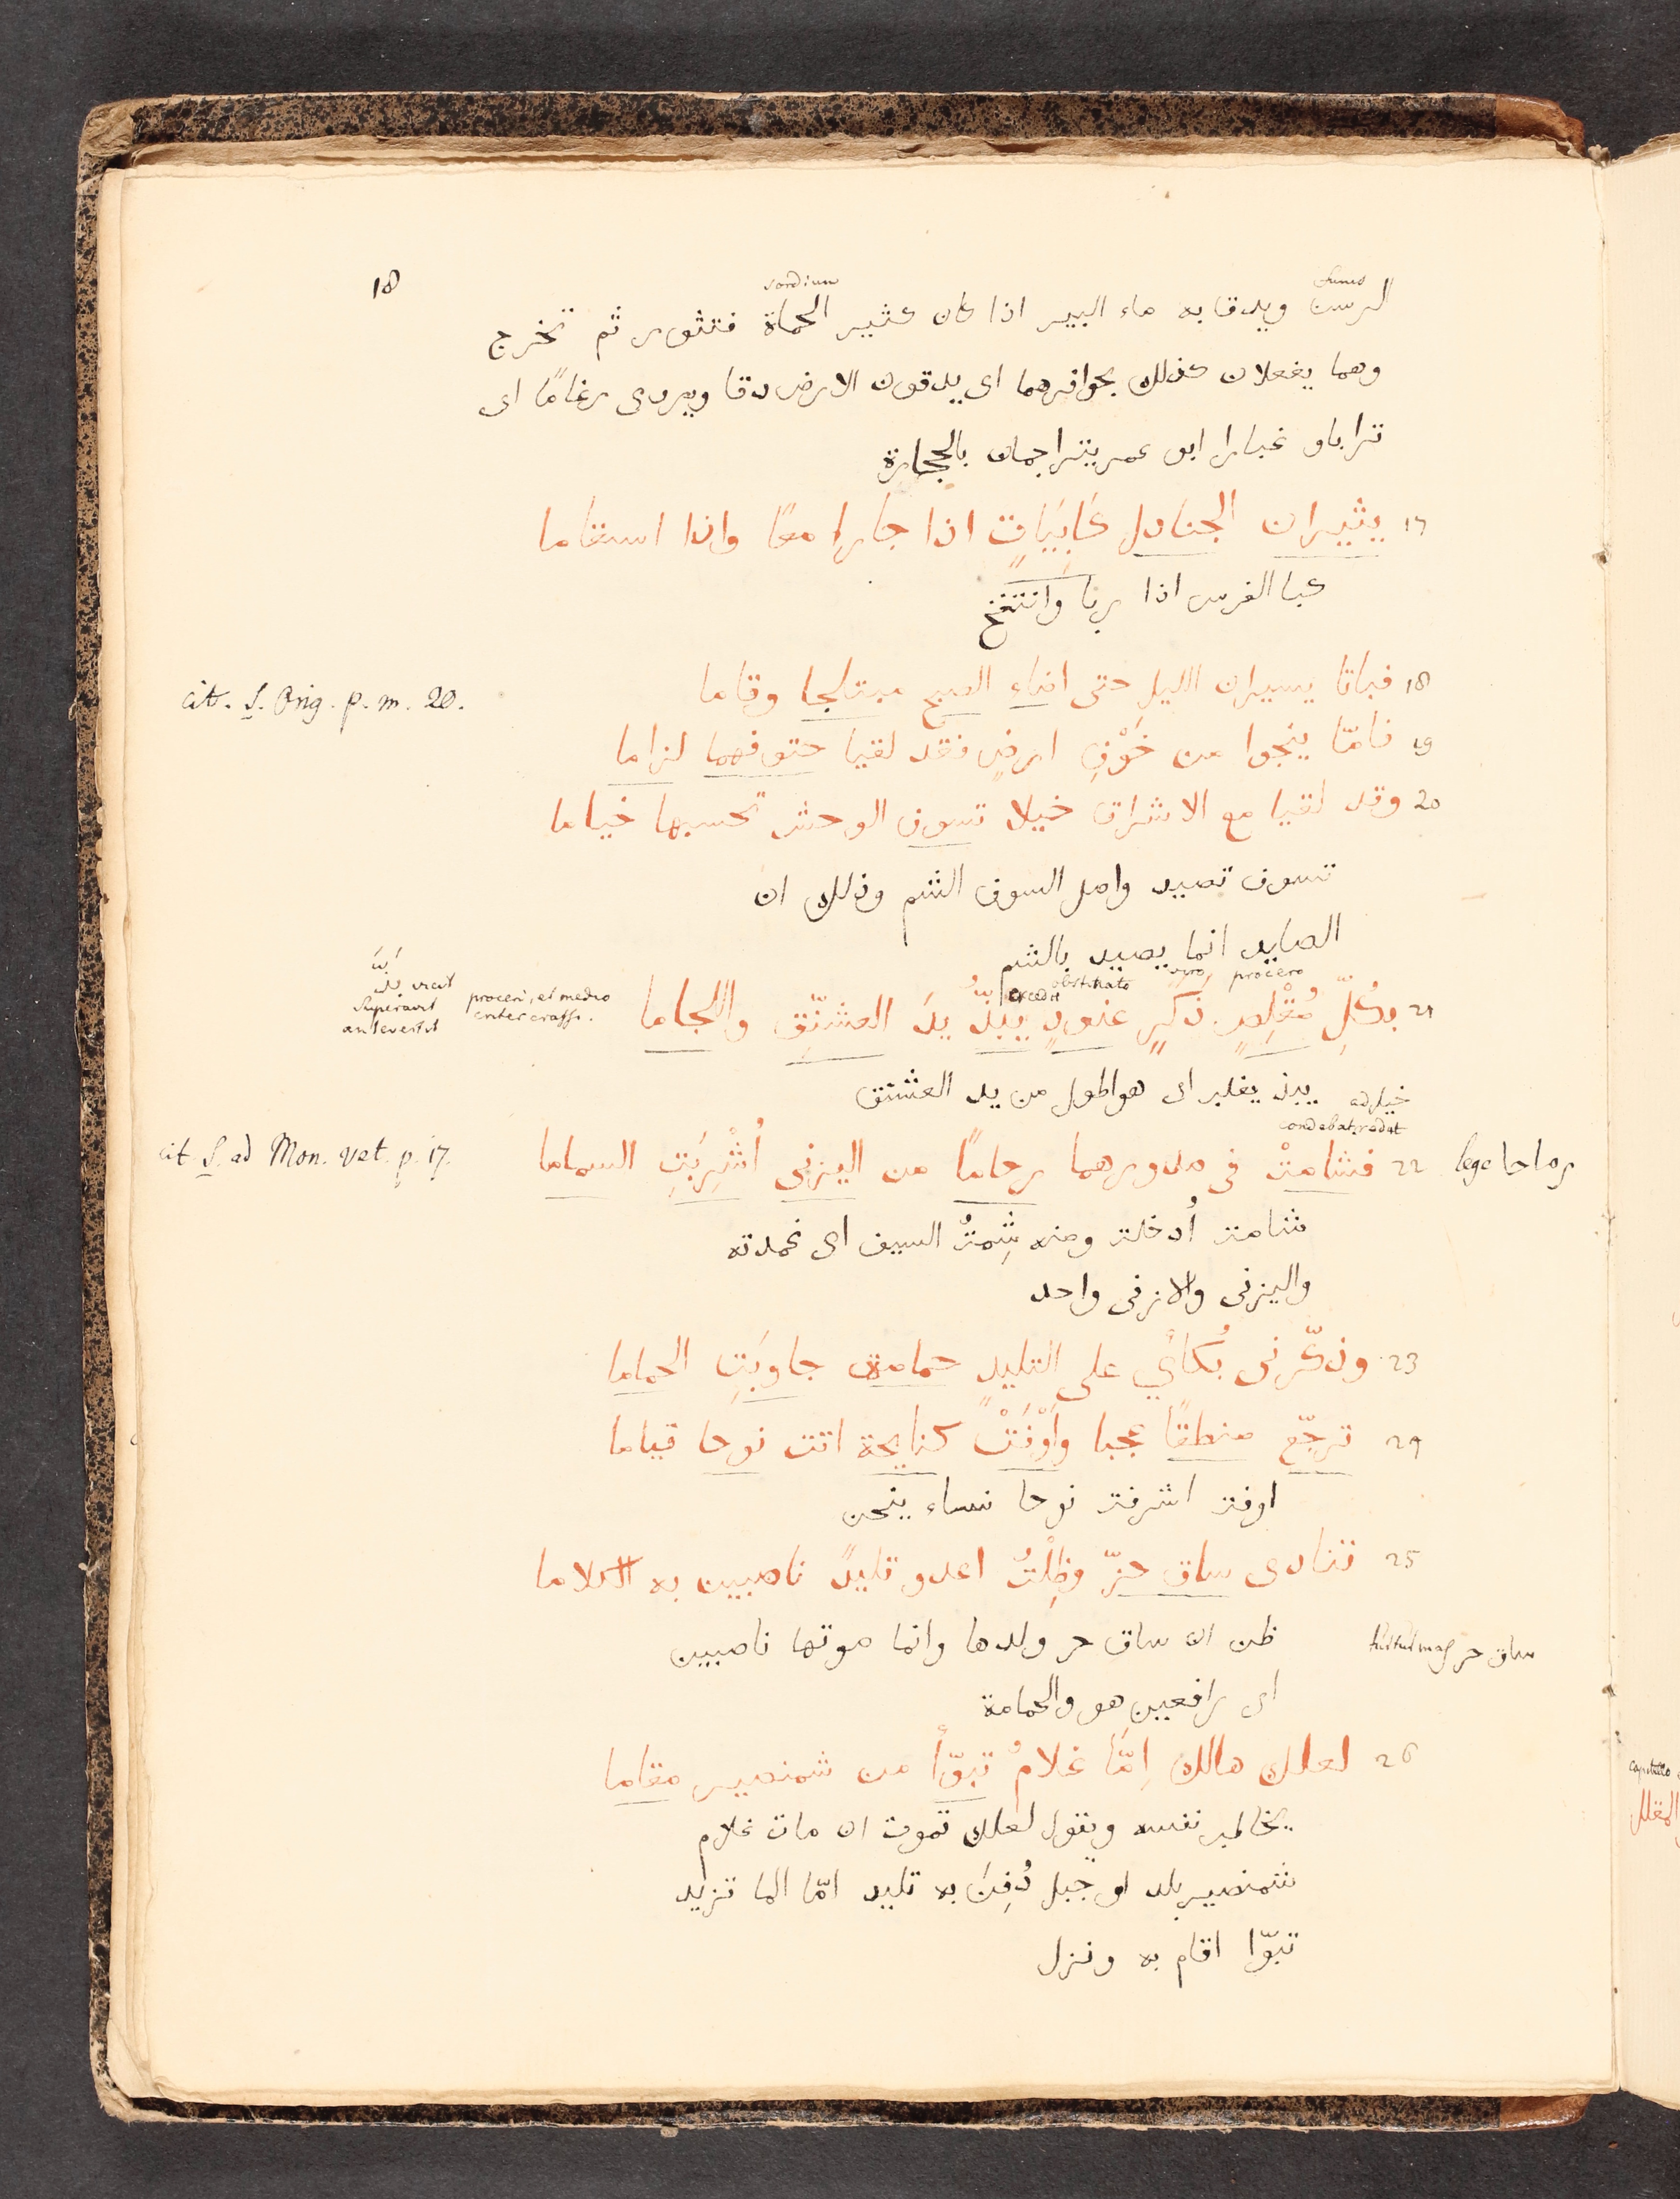 18
funis
sordium
الرسن ويدقا به ماء البير اذا كان كثير الحماة فتثور ثم تخرج
وهما يفعلان كذلك بحوافرهما اى يدقون الارض دقا ويروى رغامًا اى
ترابا و غبارا ابو عمر يتراجمان بالحجارة
17 يثيران الجنادل كَابِيَاتٍ اذا جارا معًا واذا استقاما
كبا الفرس اذا ربا وانتفخ
18 فباتا يسيران الليل حتى اضاء الصبح مبتلجا وقاما
cit. S. Orig. p. m. 20.
19 فامّا ينجوا من خَوْفِ ارضٍ فقد لقيا حتوفهما لزاما
20 وقد لقيا مع الاشراق خيلا تسوف الوحش تحسبها خياما
تسوف تصيد واصل السوف الشم وذلك ان
الصايد انما يصيد بالشم
viro procero
obstinato
excedit
21 بكُلِّ مُقْلِصٍ ذكرٍ عنودٍ يبذُّ يدَ العشنّقِ واللجاما
proceri, et medio
inter crassi.
بذّ vicit
superavit
antevertit
خيل ad يبذ يغلب اى هو اطول من يد العشنق
condebat
22 فشامتْ فى صدورهما رحامًا من اليزنى أُشْرِبَتِ السماما
lege رماحا
cit. S. ad Mon. vet. p. 17.
شامت أدخلت ومنه شِمتُ السيف اى غمدته
واليزنى والازنى واحد
23 وذكّرنى بُكأي على التليدٍ حمامة جاوبَتِ الحماما
24 ترجّع منطقًا عجبا وأَوْفَتْ كنايحة اتت نوحا قياما
اوفت اشرفت نوحا نساء ينحن
25 تنادى ساق حرّ وظِلْتُ ادعو تليدً ناصبين به الكلاما
ظن ان ساق حر ولدها وانما صوتها ناصبين
ساق حر
اى رافعين هو والحمامة
26 لعلك هالك اِمَّا غلامٌ تبوّأَ من شمنصير مقاما
يخاطب نفسه ويقول لعلك تموت ان مات غلام
شمنصير بلد او جبل دُفِنَ به تليد امّا الما تزيد
تبوّا اقام به ونزل